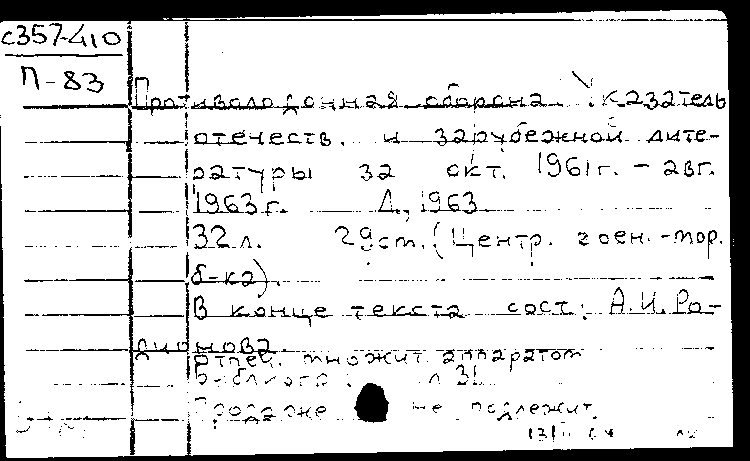 с357-410
П-83
Противолодонная оборона. Указатель
отечеств. и зарубежной лите-
ратуры за окт. 1961г. - авг.
1963г. Л., 1963.
32 л. 29 см. (Центр. воен.-мор.
б-ка).
В конце текста сост.: А.И. Ро-
дионова.
Отпеч. множит. аппаратом
Библиогр.: л 31
Продаже не подлежит.